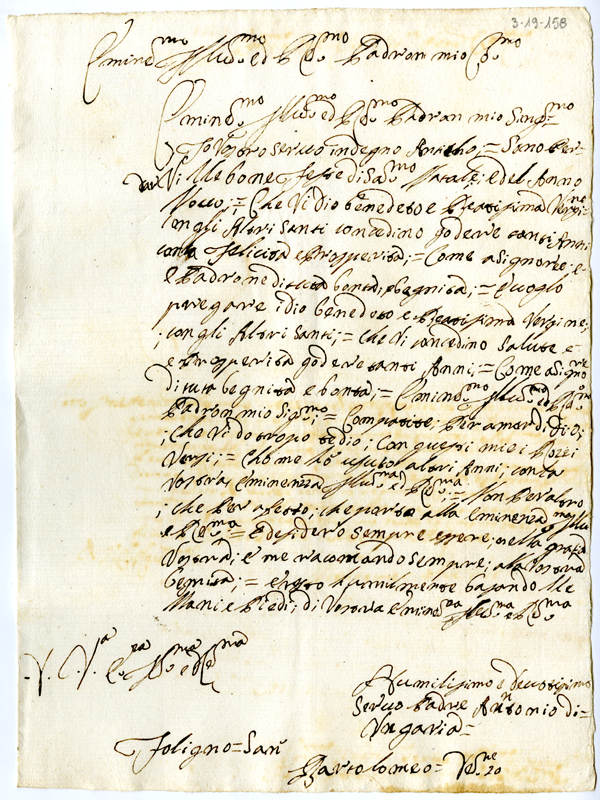 3-19-158
Emine.mo Illus.mo ed R.mo Padron mio Co.mo
Emine.mo Illus.mo ed R.mo Padron mio Sing.mo
Io Vostro Servo indegno Anticho;= Sano Per
Vi lle bone feste di Sa.mo Natale; e del Anno
Novo;= Che Vi dio benedeto e Beatisima Vergine
con gli Altri Santi concedino godere tanti Anni
con felicita e Prosperita;= Come a Signore; e
Padrone di tuta bonta, e begnita;= E voglo
pregare idio benedeto e Beatisima Vergine;
; con gli Altri Santi;= che Vi concedino Salute e
e Prosperita godere tanti Anni;= Come a Signore
di tuta begnita e bonta;= Emine.mo Illus.mo ed R.mo
Padron mio Sig.mo;= Compatite; Per amor di dio;
; che Vi do tropo tedio; con questi miei
Versi;= Che me ho usato altri Anni; con la
Vostra Eminenza Illus.ma ed R.ma;= Non Per altro
; che Per afetto; che porto alla Eminenza Illus.ma
e R.ma= E desidero Sempre essere; nella gratia
Vostra; e me racomando Sempre; a la Vostra
benita;= e resto humilmente basando lle
Mani e Piedi; di Vostra Emine.za Illus.ma e R.ma
V. E. Ill.ma ed R.ma
Humilisimo e devotisimo
Servo Padre Antonio di
Vngaria=
Foligno= San
Bartolomeo= 20